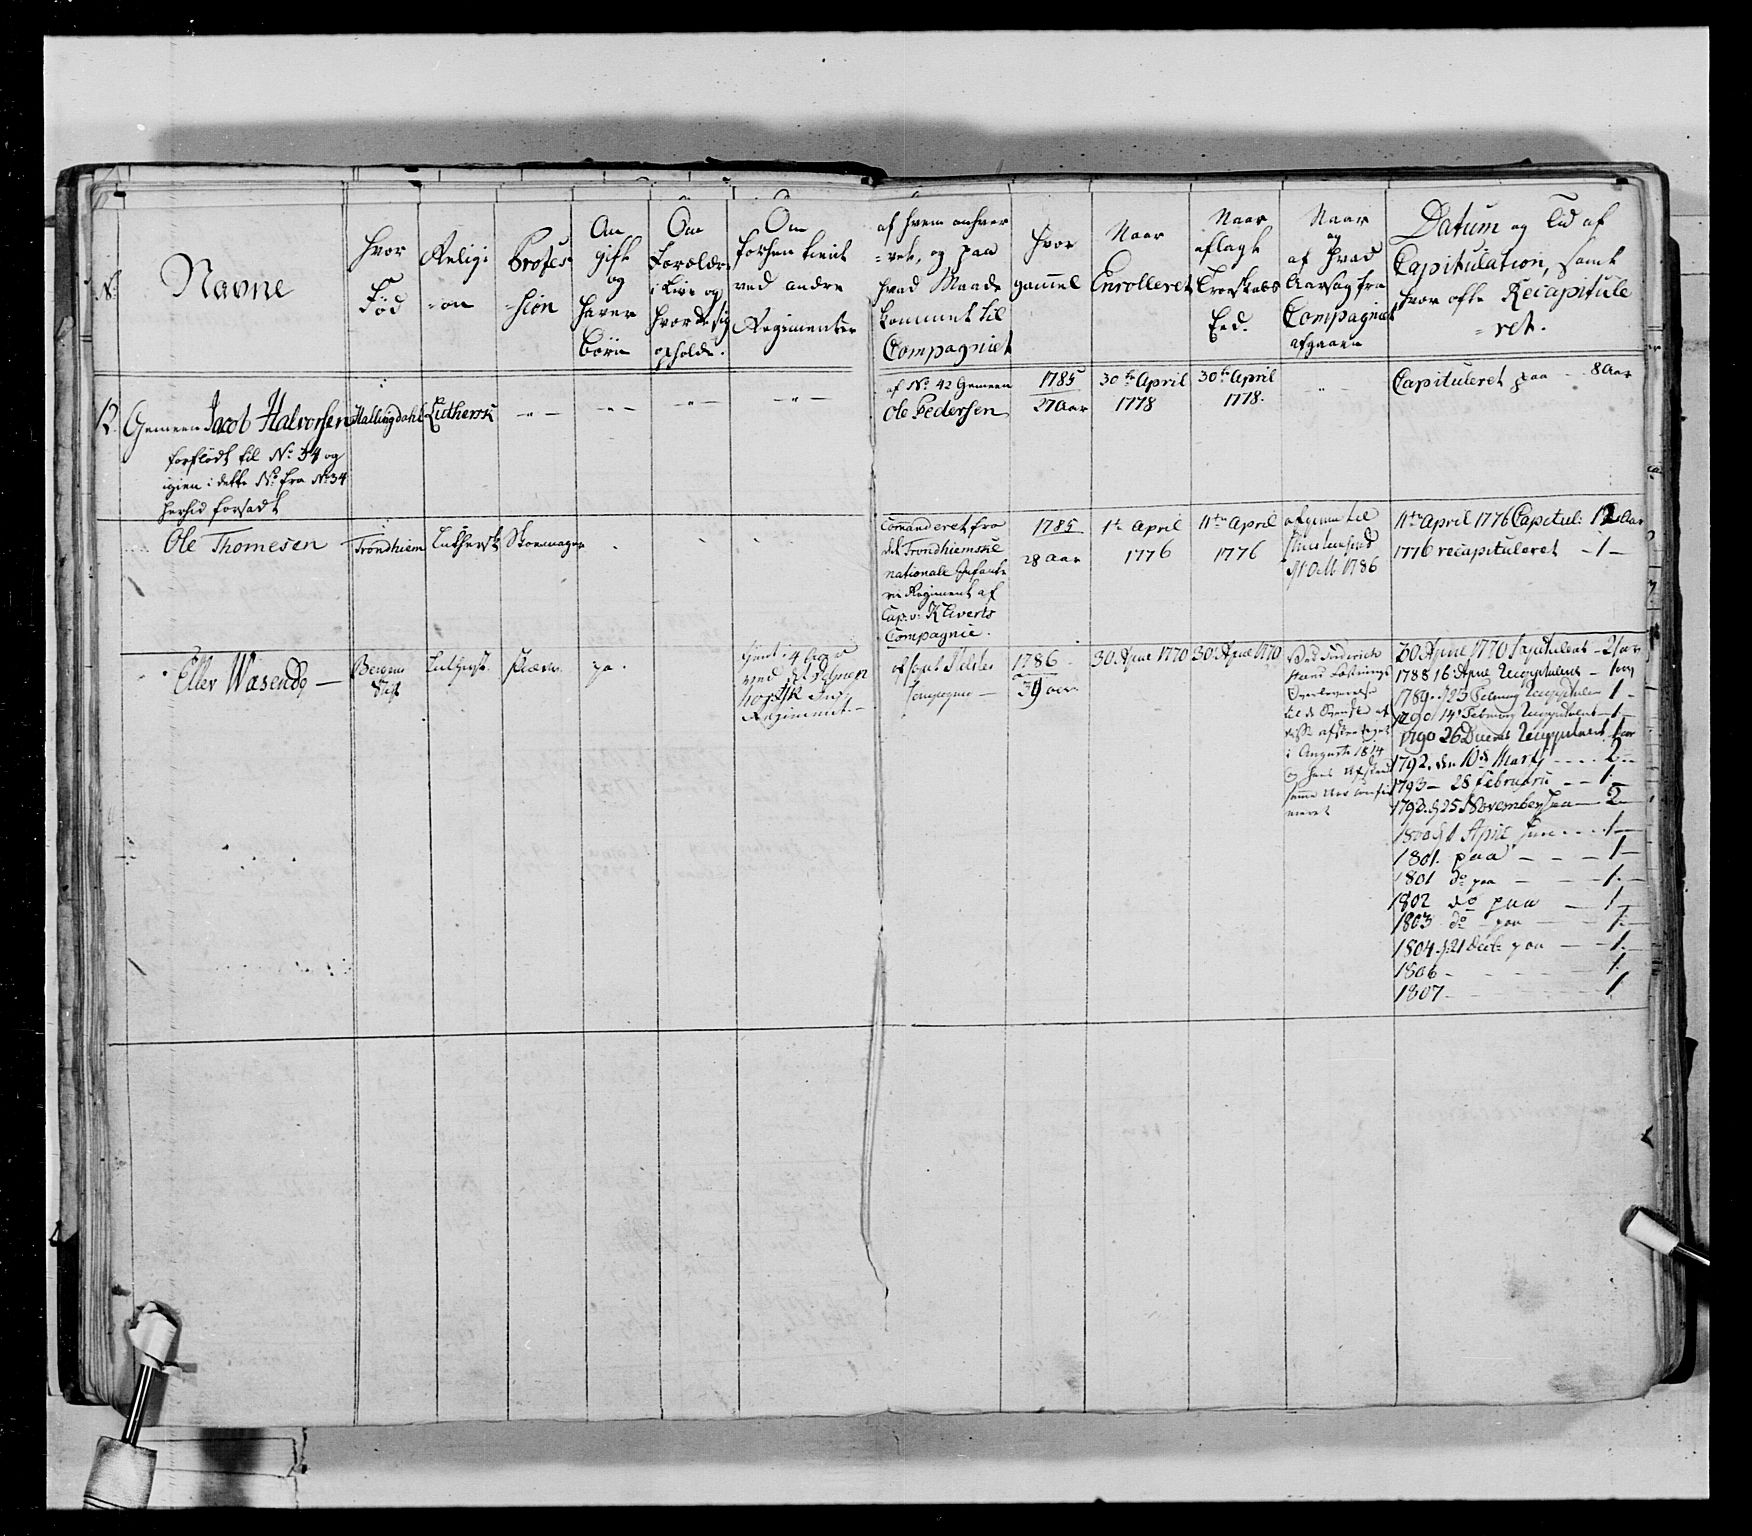 No.
Navne
Hvor
Fød
Religi
=on
Profes=
=sion
Om
gift
og
haver
Børn
Om
Forældre
i Live og
hvor de sig
opholde.
Om
forhen tient
ved andre
Regimenter
af hvem anhver
=vet, og paa
hvad Maade
kommet til
Compagniet
Hvor
gammel
Naar
Enrolleret
Naar
aflagt
Troeskabs
Eed.
Naar
og
af hvad
Aarsag fra
Compagniet
afgaaen
Datum og Tid af
Capitulation, samt
hvor ofte Recapitule
=ret.
12.
Gemeen Jacob Halvorsen
forflödt til No. 34 og
igien i dette No. fra No 34
herhid forsadt
Hallingdahl
Luthersk
af No. 42 Gemeen
Ole Pedersen
1785
27 Aar
30te April
1778
30te April
1778.
Capituleret paa - - 8 Aar
Ole Thomesen
Trondhiem
Luthersk
Skoemager
Comanderet fra
det Trondhiemske
nationale Infante
rie Regiment af
Cap. v: Klüverts
Compagnie.
1785
28 aar
1te April
1776
11te April
1776
afgaaen til
1786
11te April 1776 Capitul: 12 Aar
1776 recapituleret - 1 -
Eller Wasendg —
Bergens
Stift
Luthersk.
ja.
tient i 4 Aar
ved
Inf
Regiment. -
Compagnie —
1786
39 aar
30 April 1770
30 April 1770
Ved Friderich
Overleverelse
afskediget
i Auguste 1814
og hans Afskeed
30 April 1770 Capituleret - 2 aar
1788 16 April Recapituleret - 1 aar
1789. d 23 Februari Recapituleret 1 -
1790 14 Februari Recapituleret - 1 -
1790 26 Recapituleret 1 aar
1792. den 10de Martj - - - . 2 - -
1793 - 28 Februarii - - 1. -
1793. d 25 November paa — 2 -
1800 d 1 April paa . . . 1 -
1801. paa - - - 1 -
1801 do paa - - - 1. -
1802 do paa - 1 -
1803 do - paa - - 1. -
1804. d. 21 Dec. paa - - 1. -
1806 - - - - 1.
1807 - - - - 1